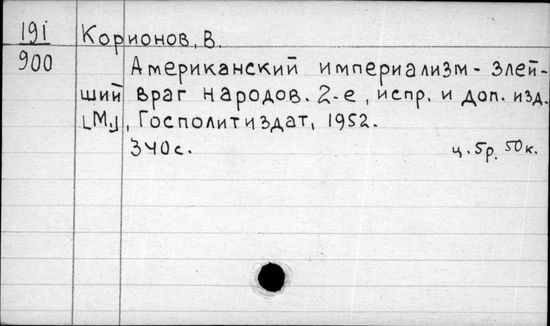 191
900
Корионов, В.
Американский империализм - злей-
ший враг народов. 2-е, испр. и доп. изд.
[М.], Госполитиздат, 1952.
340с. ц. 5р. 50к.